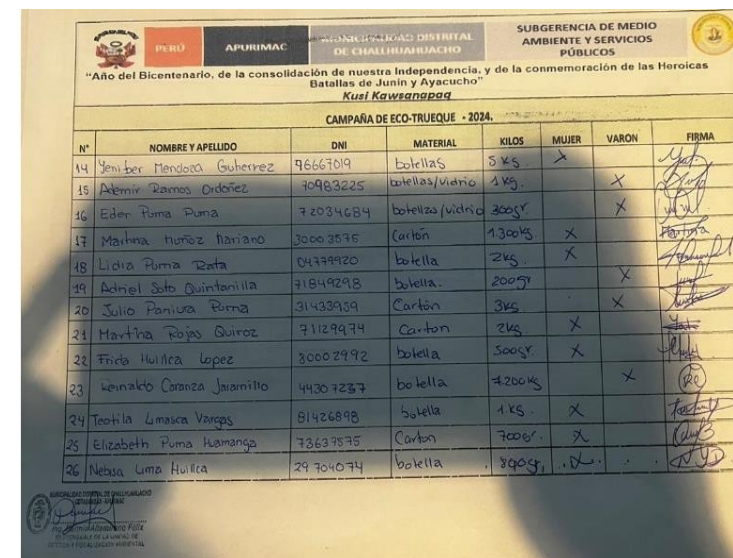 PERÚ
APURIMAC
MUNICIPALIDAD DISTRITAL
DE CHALLHUAHUACHO
SUBGERENCIA DE MEDIO
AMBIENTE Y SERVICIOS
PÚBLICOS
"Año del Bicentenario, de la consolidación de nuestra Independencia, y de la conmemoración de las Heroicas
Batallas de Junín y Ayacucho"
Kusi Kawsanapaq
CAMPAÑA DE ECO-TRUEQUE - 2024.
N° NOMBRE Y APELLIDO DNI MATERIAL KILOS MUJER VARON FIRMA
14 Yenifer Mendoza Gutierrez 76667019 botellas 5 kg. X
15 Ademir Ramos Ordoñez 70983225 botellas/vidrio 1 kg. X
16 Eder Puma Puma 72034684 botellas/vidrio 300gr X
17 Martina Muñoz Mariano 30003575 Cartón 1.300kg X
18 Lidia Puma Rata 04779920 botella 2kg X
19 Adriel Soto Quintanilla 71849298 botella. 200gr X
20 Julio Paniura Puma 31433959 Cartón 3kg X
21 Martha Rojas Quiroz 71129974 Carton 2kg X
22 Frida Huillca Lopez 80002992 botella 500gr. X
23 Reinaldo Caranza Jaramillo 44307237 botella 4.200kg X
24 Teofila Limasca Vargas 81426898 botella 1 kg. X
25 Elizabeth Puma Huamanga 73637575 Carton 700gr. X
26 Nebisa Lima Huillca 29704074 botella 890gr. X
MUNICIPALIDAD DISTRITAL DE CHALLHUAHUACHO
COTABAMBAS - APURIMAC